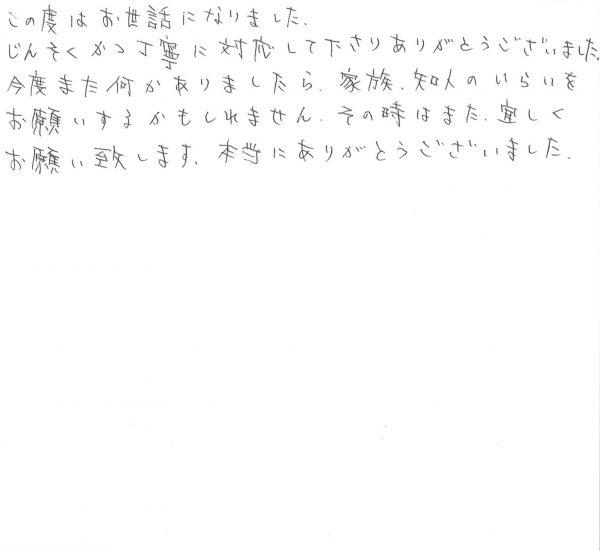 この度はお世話になりました.
じんそくかつ丁寧に対応して下さりありがとうございました.
今度また何かありましたら、家族、知人のいらいを
お願いするかもしれません. その時はまた、宜しく
お願い致します. 本当にありがとうございました.